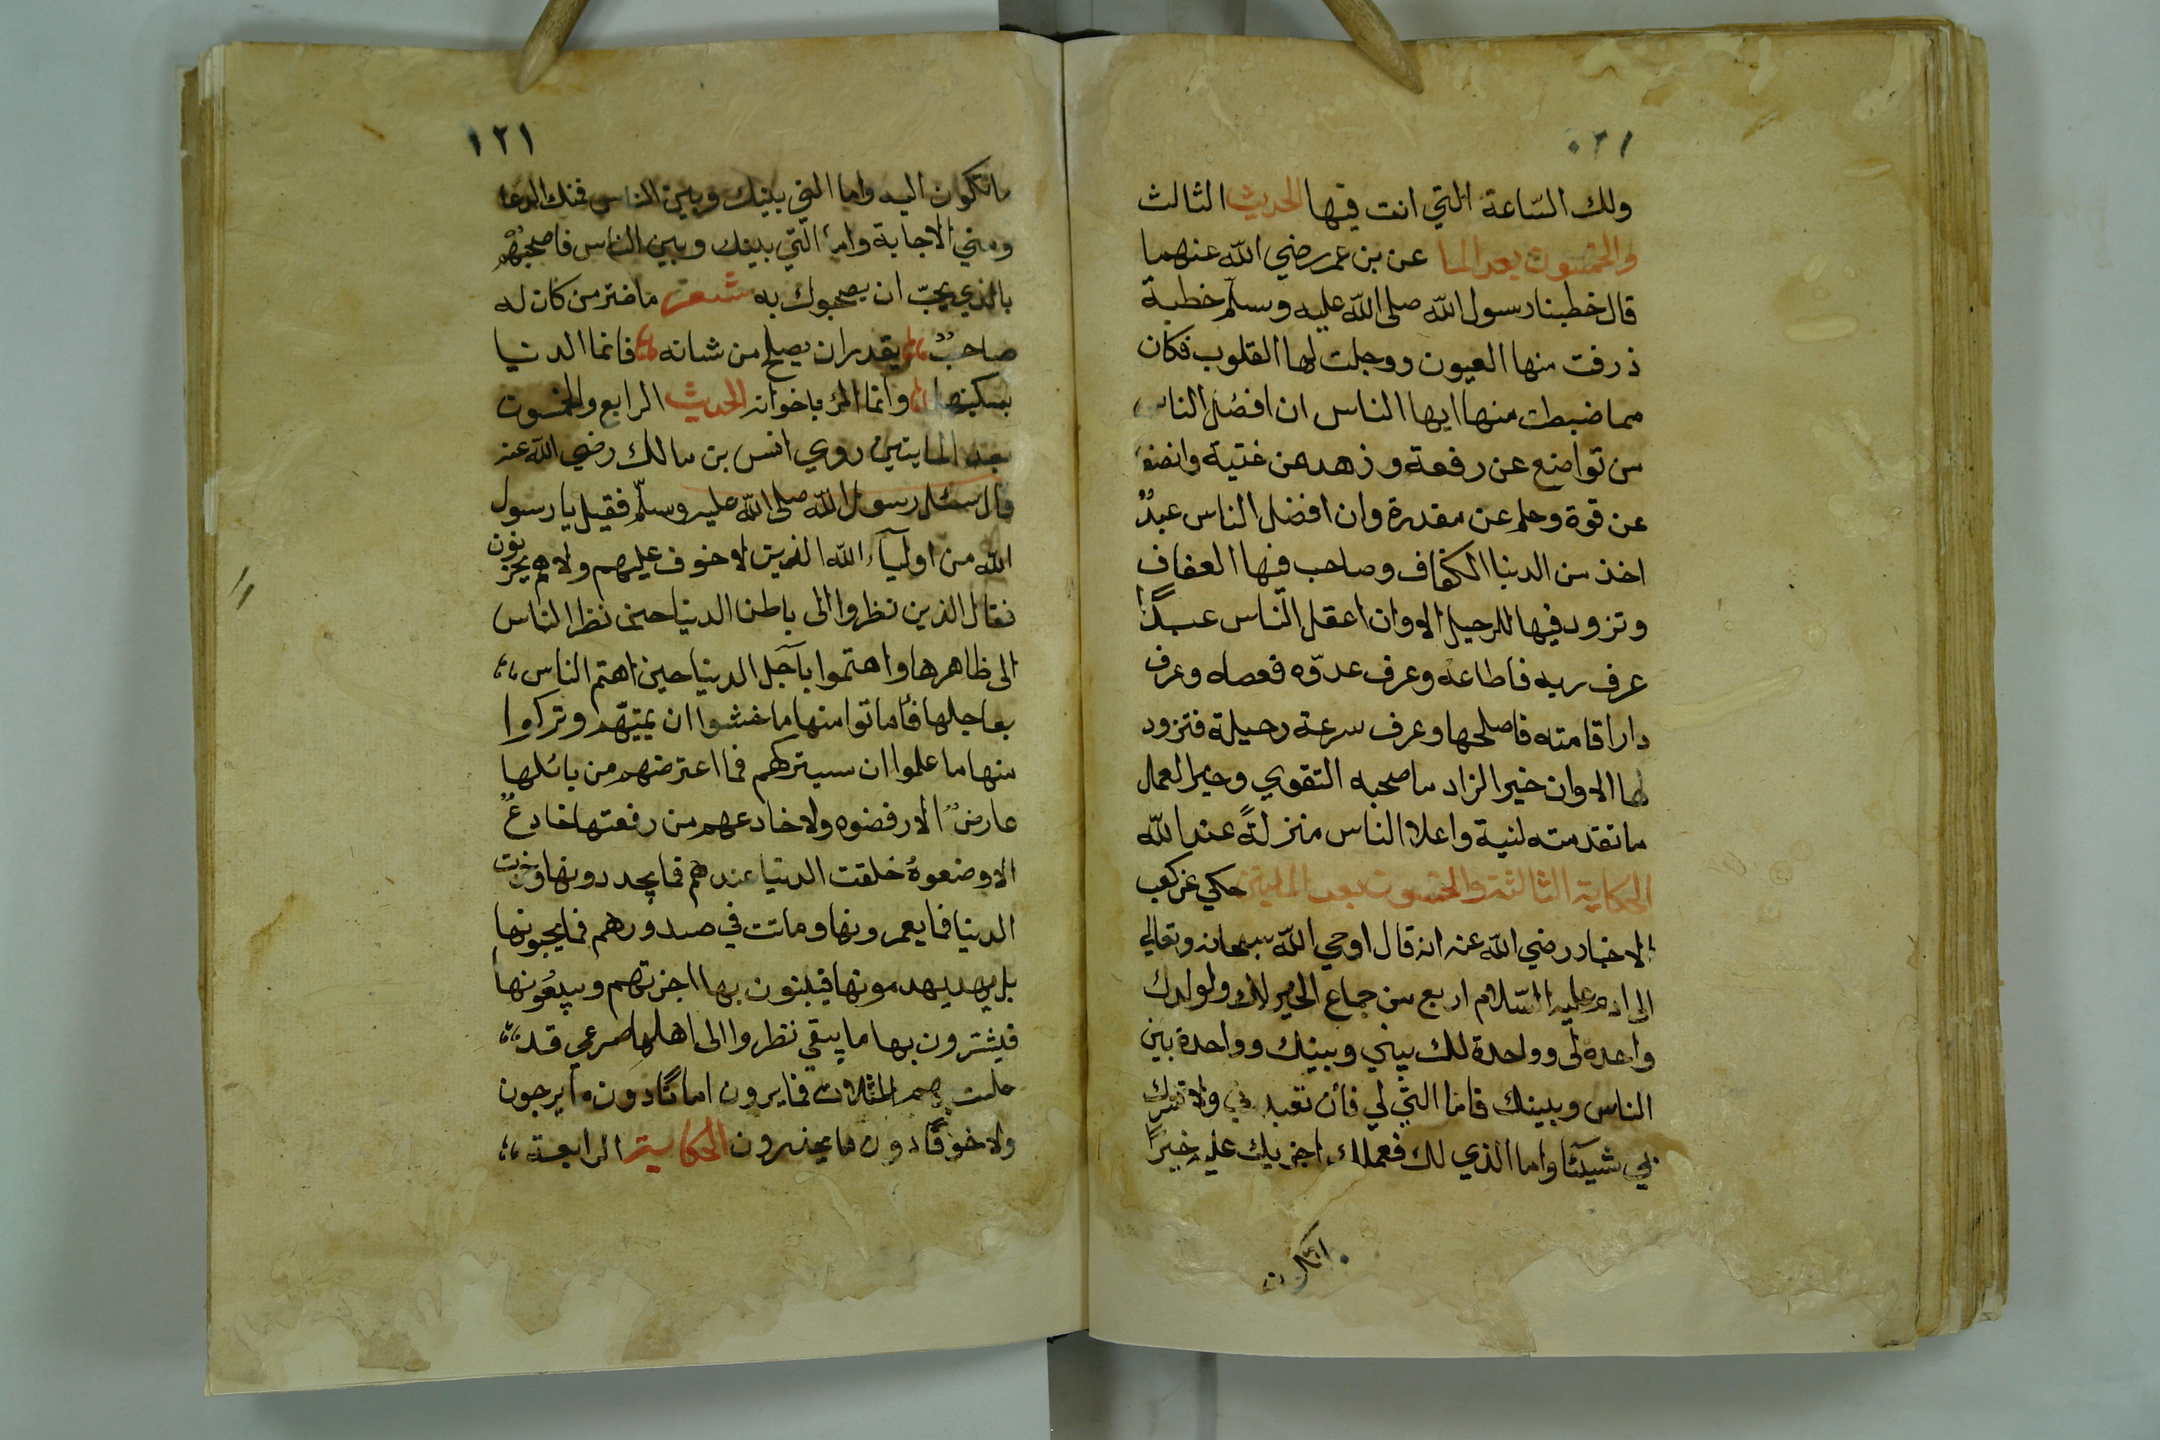 ١٢١
ولك السّاعة التي انت فيها الحديث الثالث
والخمسون بعد الما عن بن عمر رضي الله عنهما
قال خطبنا رسول الله صلى الله عليه وسلّم خطبة
ذرفت منها العيون ووجلت لها القلوب فكان
مما ضبطت منها ايها الناس ان افضل الناس
من تواضع عن رفعة وزهد عن غنية وانصف
عن قوة وحلم عن مقدرة وان افضل الناس عبدٌ
اخذ من الدنيا الكفاف وصاحب فيها العفاف
وتزود فيها للرحيل الا وان اعقل النّاس عبدًا
عرف ربه فاطاعه وعرف عدوّه فعصاه وعرف
دار اقامته فاصلحها وعرف سرعة رحيله فتزود
لها الا وان خير الزاد ما صحبه التقوي وخير العمل
ما تقدمته لنية واعلا الناس منزلةً عند الله
الحكاية الثالثة والخمسون بعد المايتين حكي عن كعب
الاخبار رضي الله عنه انه قال اوحي الله سبحانه وتعالى
الى ادم عليه السّلام اربع من جماع الخير لك ولولدك
واحدة لى وواحدة لك بيني وبينك وواحدة بين
الناس وبينك فاما التّي لي فأن تعبدني ولا تشرك
بي شيئًا واما الذي لك فعملك اجزيك عليه خيرًا
١٢١
ما تكون اليه واما التي بينك وبين الناس فمنك الدعا
ومني الاجابة واما التّي بينك وبين الناس فاصحبهم
بالذي يحبّ ان يصحبوك به شعر ما ضر من كان له
صاحبٌ يقدر ان يصلح من شانه فانما الدنيا
بسكنها وانما المرء باخوانه الحديث الرابع والخمسون
بعد المايتين روي انس بن مالك رضي الله عنه
قال سئل رسول الله صلى الله عليه وسلّم فقيل يا رسول
الله من اوليآء الله الذين لا خوف عليهم ولا هم يحزنون
فقال الذين نظروا الى باطن الدنيا حين نظر الناس
الى ظاهرها واهتموا بآجل الدنيا حين اهتم الناس
بعاجلها فأماتوا منها ما خشوا ان يميتهم وتركوا
منها ما علموا ان سيتركهم فما اعترضهم من نائلها
عارضٌ الا رفضوه ولا خادعهم من رفعتها خادعٌ
الا وضعوهُ خلقت الدنيا عندهم فما يجددونها وخربت
الدنيا فما يعمرونها وماتت في صدورهم فما يحيونها
بل يهدمونها فيبنون بها اخرتهم ويبيعونها
فيشترون بها ما يبقي نظروا الى اهلها صرعي قد
حلت بهم المثلات فما يرون امانًا دون ما يرجون
ولا خوفًا دون ما يحذرون الحكاية الرابعة